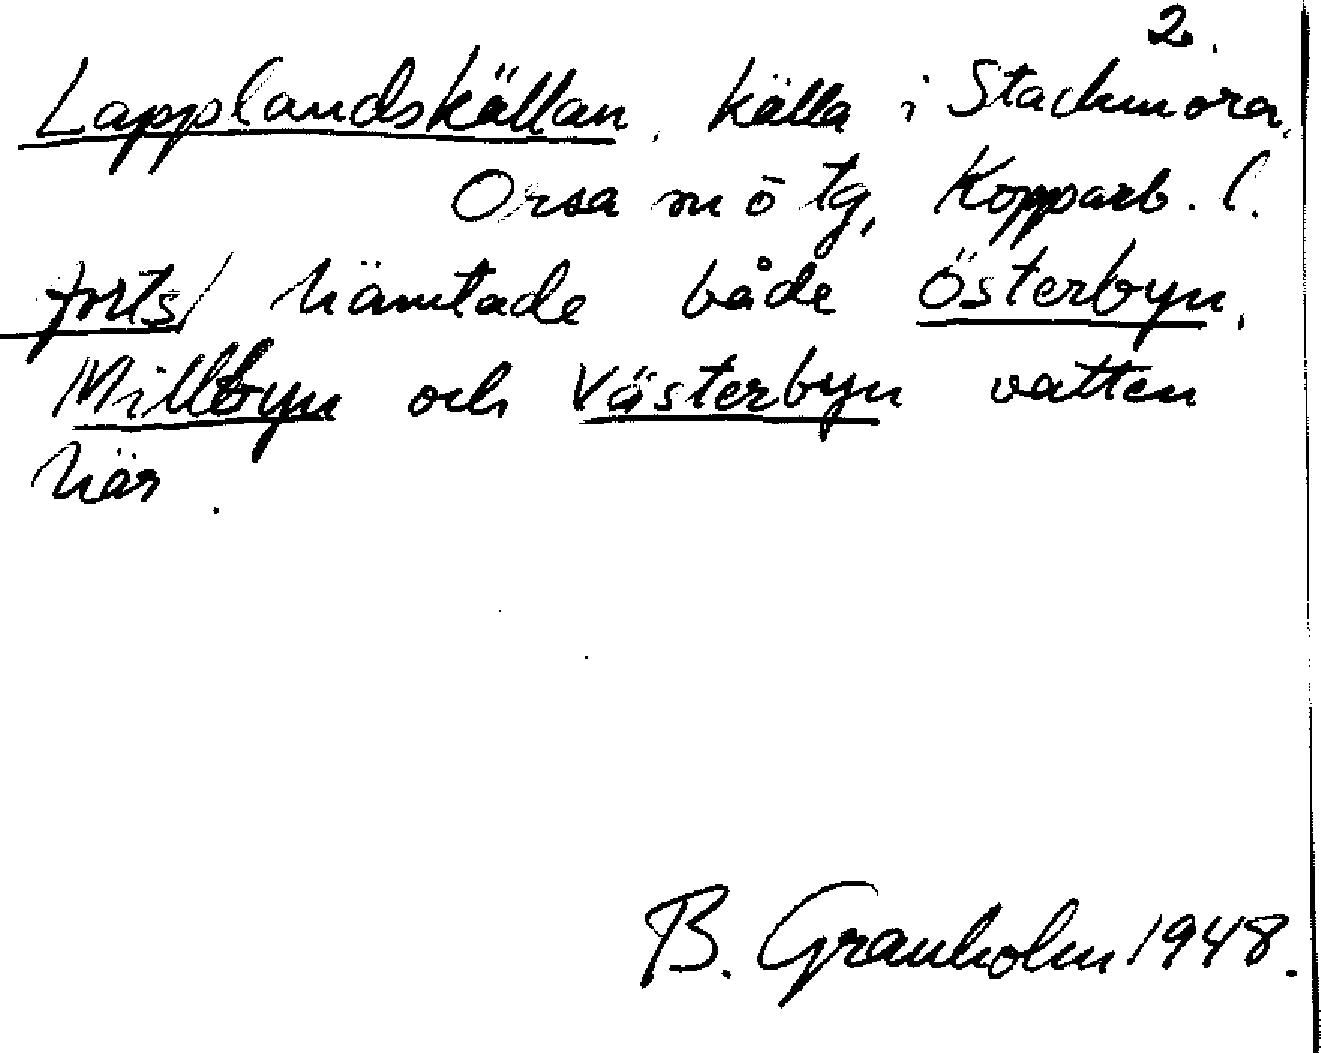 2.
Lapplandskällan, källa i Stackmora,
Orsa m ö tg, Kopparb. l.
forts/ hämtade både Österbyn,
Millbyn och Västerbyn vatten
här.
B. Granholm 1948.